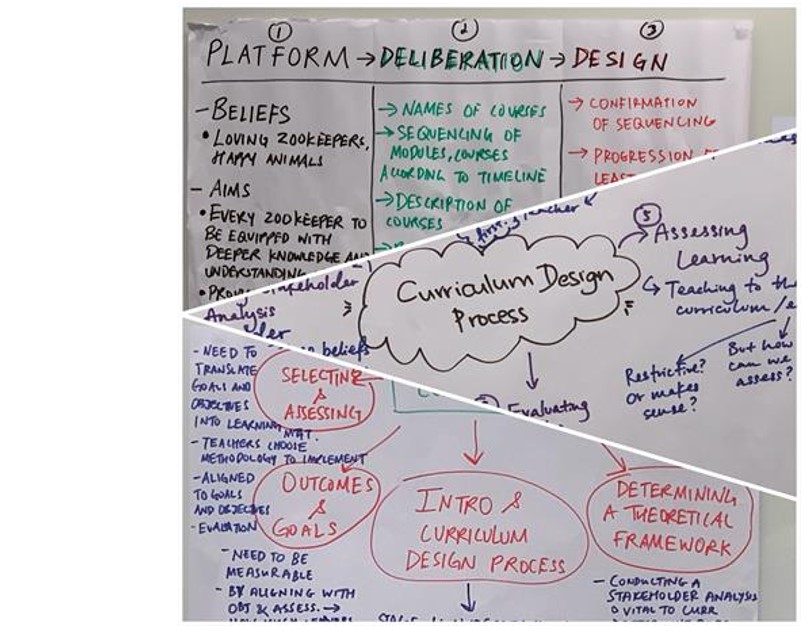 ① ② ③
PLATFORM → DELIBERATION → DESIGN
- BELIEFS
• LOVING ZOOKEEPERS,
HAPPY ANIMALS
- AIMS
• EVERY ZOOKEEPER TO
BE EQUIPPED WITH
DEEPER KNOWLEDGE AND
UNDERSTANDING
→ NAMES OF COURSES
→ SEQUENCING OF
MODULES, COURSES
ACCORDING TO TIMELINE
→ DESCRIPTION OF
COURSES
→ CONFIRMATION
OF SEQUENCING
→ PROGRESSION
LEAST
Analysis
beliefs
Curriculum Design
Process
⑤
Assessing
Learning
↳ Teaching to the
curriculum /
Restrictive?
or makes
sense?
But how
can we
assess?
Evaluating
- NEED TO
TRANSLATE
GOALS AND
OBJECTIVES
INTO LEARNING MAT.
- TEACHERS CHOOSE
METHODOLOGY TO IMPLEMENT
- ALIGNED
TO GOALS
AND OBJECTIVES
- EVALUATION
SELECTING
&
ASSESSING
OUTCOMES
&
GOALS
- NEED TO BE
MEASURABLE
- BY ALIGNING WITH
OBJ & ASSESS. →
INTRO &
CURRICULUM
DESIGN PROCESS
DETERMINING
A THEORETICAL
FRAMEWORK
- CONDUCTING A
STAKEHOLDER ANALYSIS
VITAL TO CURR